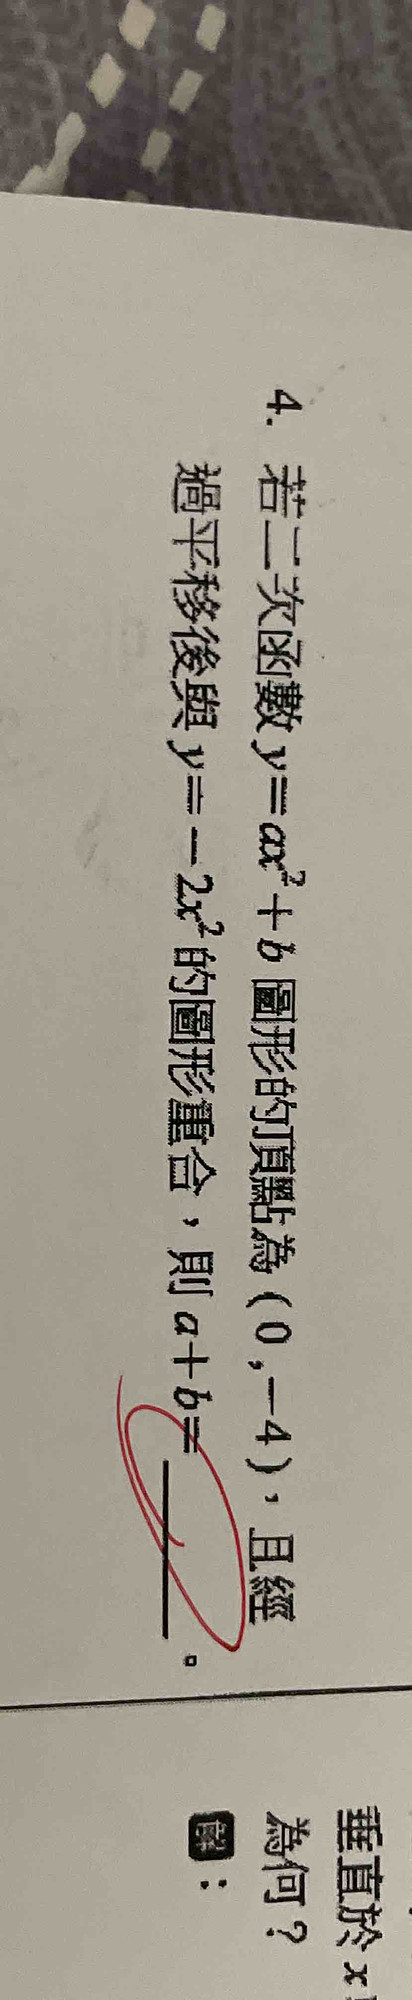 4. 若二次函數 y=ax²+b 圖形的頂點為(0,-4),且經
過平移後與 y=-2x² 的圖形重合,則 a+b=______。
垂直於 x
為何?
解: